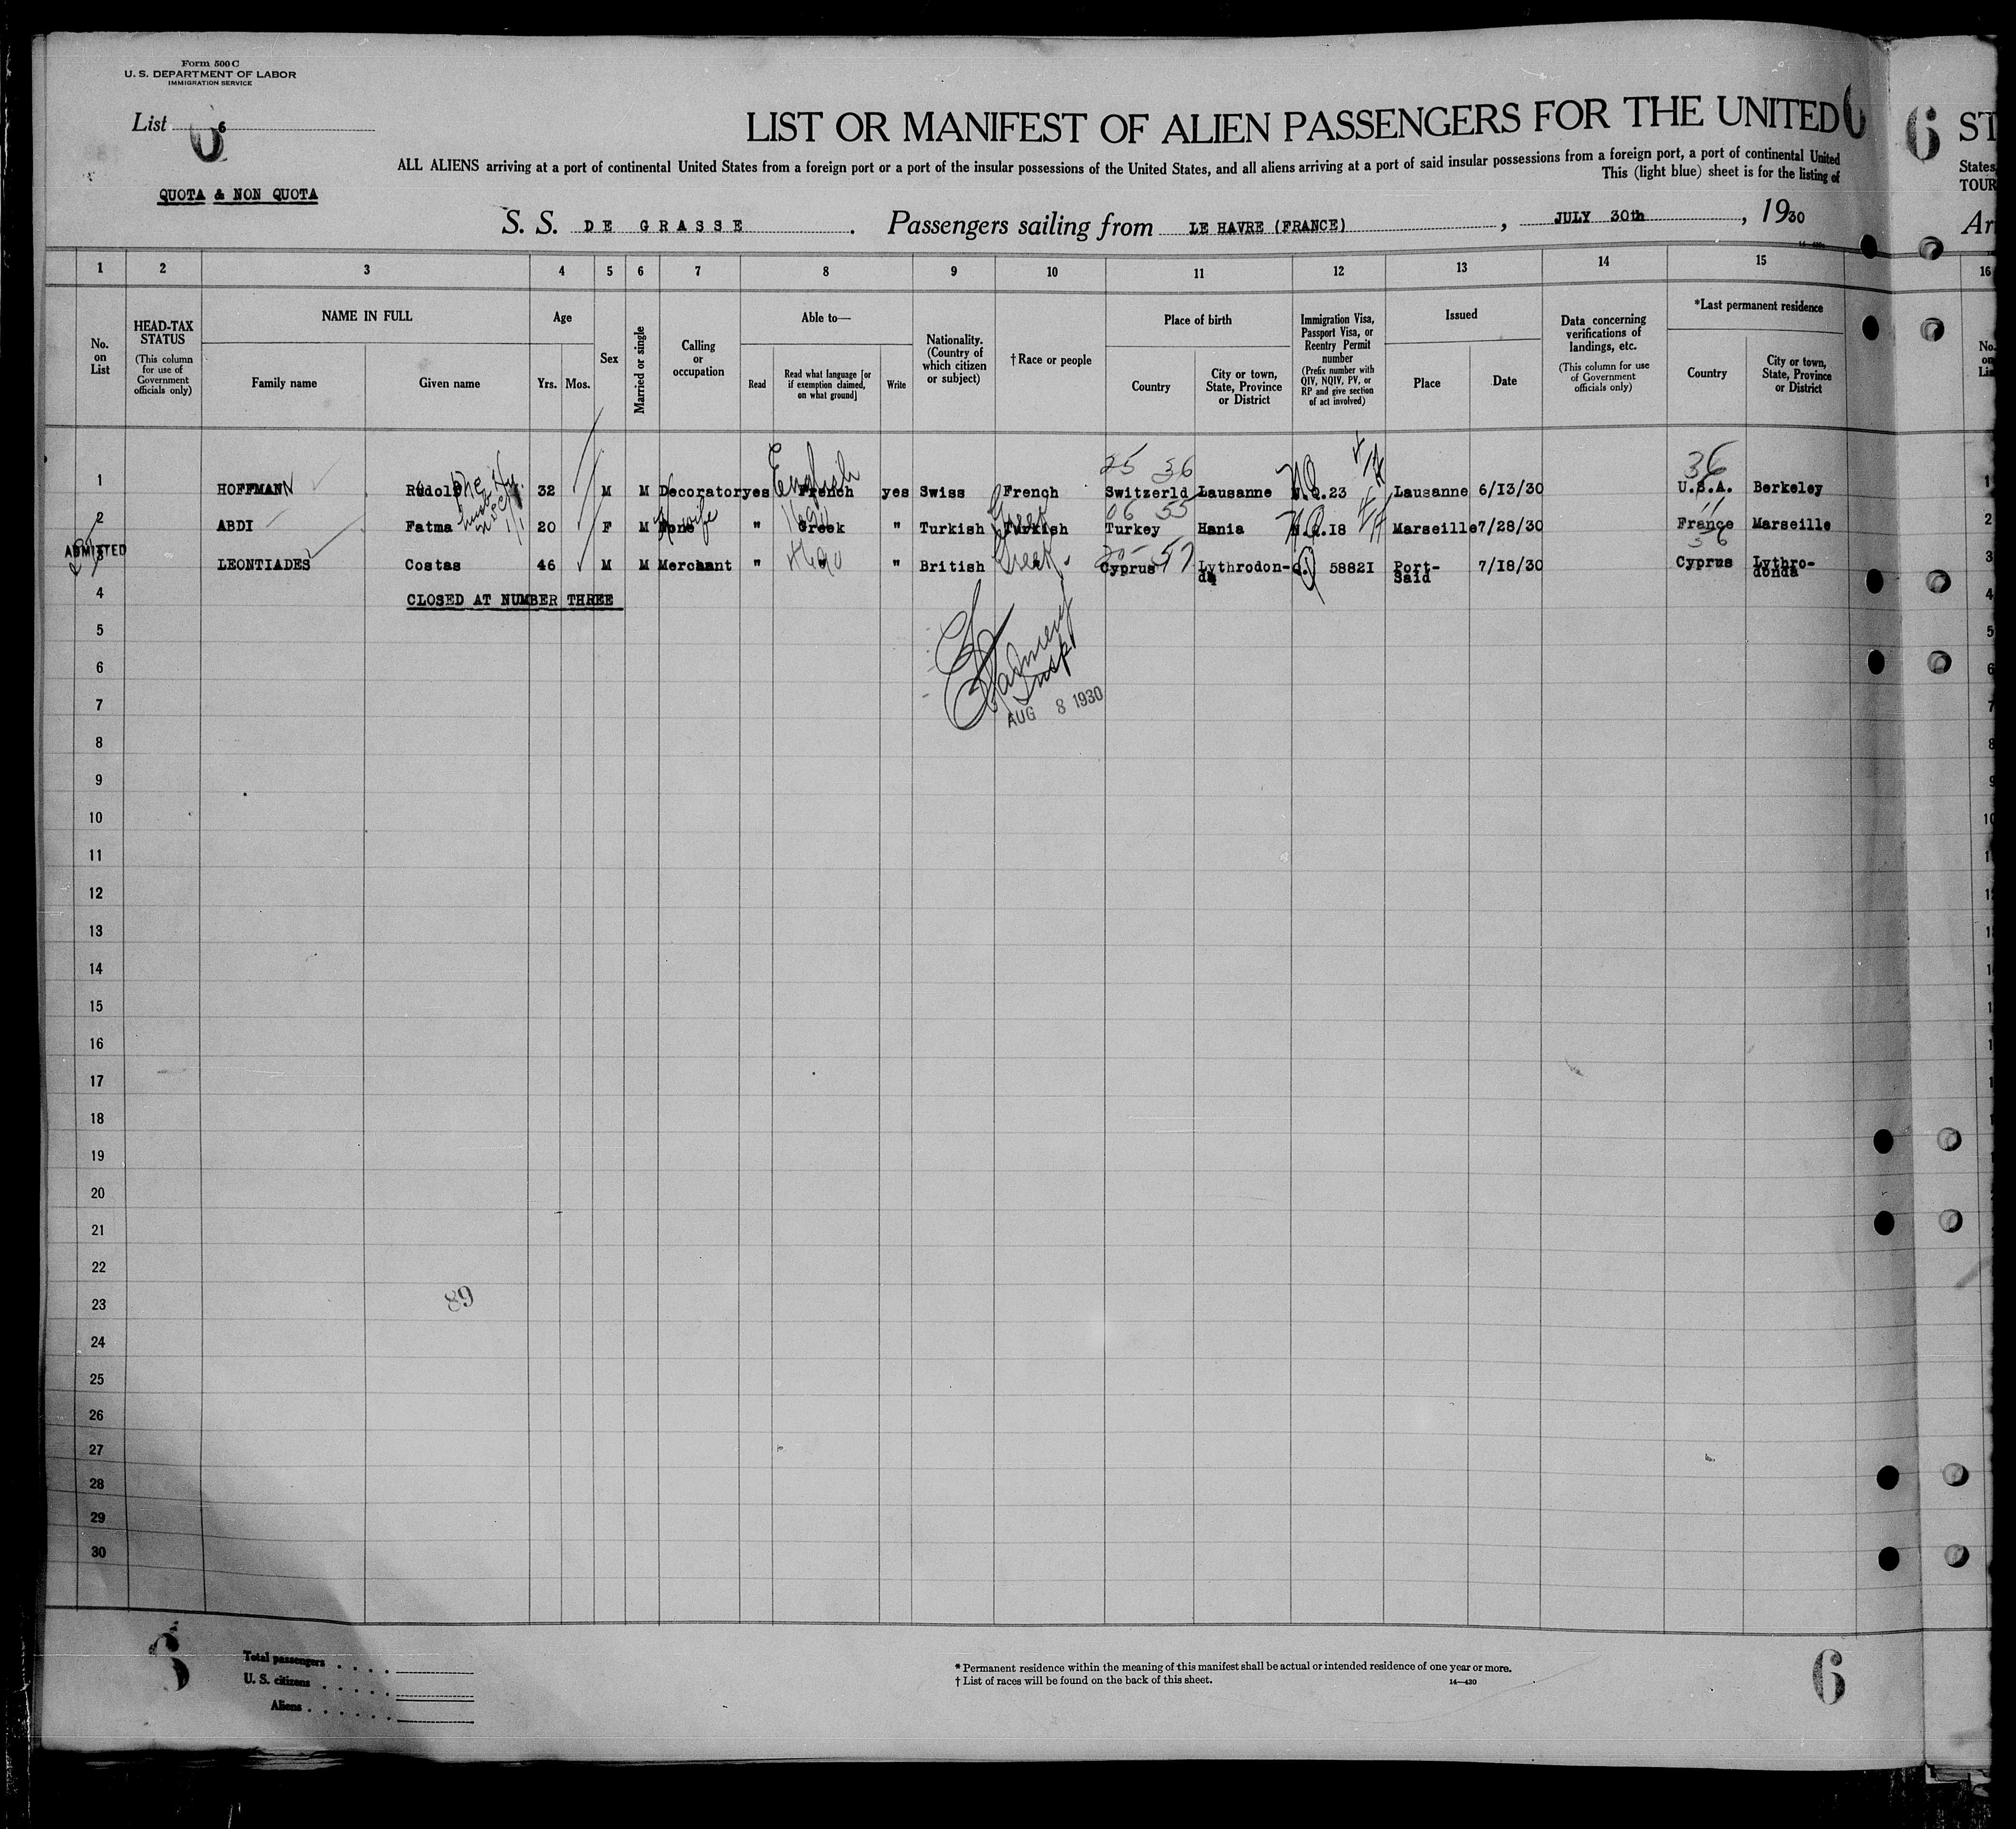 Form 500 C
U. S. DEPARTMENT OF LABOR
IMMIGRATION SERVICE
List 6
6
QUOTA & NON QUOTA
LIST OR MANIFEST OF ALIEN PASSENGERS FOR THE UNITED
6 ST
ALL ALIENS arriving at a port of continental United States from a foreign port or a port of the insular possessions of the United States, and all aliens arriving at a port of said insular possessions from a foreign port, a port of continental United
States
This (light blue) sheet is for the listing of
TOUR
S. S. DE GRASSE. Passengers sailing from LE HAVRE (FRANCE), JULY 30th, 1930
Ar
1 2 3 4 5 6 7 8 9 10 11 12 13 14 15 16
No. on List
HEAD-TAX STATUS (This column for use of Government officials only)
NAME IN FULL
Family name Given name
Age
Yrs. Mos.
Sex
Married or single
Calling or occupation
Able to—
Read Read what language [or if exemption claimed, on what ground] Write
Nationality. (Country of which citizen or subject)
† Race or people
Place of birth
Country City or town, State, Province or District
Immigration Visa, Passport Visa, or Reentry Permit number (Prefix number with QIV, NQIV, PV, or RP and give section of act involved)
Issued
Place Date
Data concerning verifications of landings, etc. (This column for use of Government officials only)
*Last permanent residence
Country City or town, State, Province or District
English 25 36 NQ 36
1 HOFFMANN Rudolf 32 M M Decorator yes French yes Swiss French Switzerld Lausanne N.Q.23 Lausanne 6/13/30 U.S.A. Berkeley 1
wife Greek 06 55 NQ 11
2 ABDI Fatma 20 F M None " Greek " Turkish Turkish Turkey Hania N.Q.18 Marseille 7/28/30 France Marseille 2
ADMITTED
Greek 57 56
3 LEONTIADES Costas 46 M M Merchant " " British Cyprus Lythrodonda Q. 58821 Port-Said 7/18/30 Cyprus Lythrodonda 3
4 CLOSED AT NUMBER THREE 4
5
6
Insp
7
AUG 8 1930
8
9
10
11
12
13
14
15
16
17
18
19
20
21
22
23
89
24
25
26
27
28
29
30
6
Total passengers
U. S. citizens
Aliens
* Permanent residence within the meaning of this manifest shall be actual or intended residence of one year or more.
† List of races will be found on the back of this sheet. 14—430
6